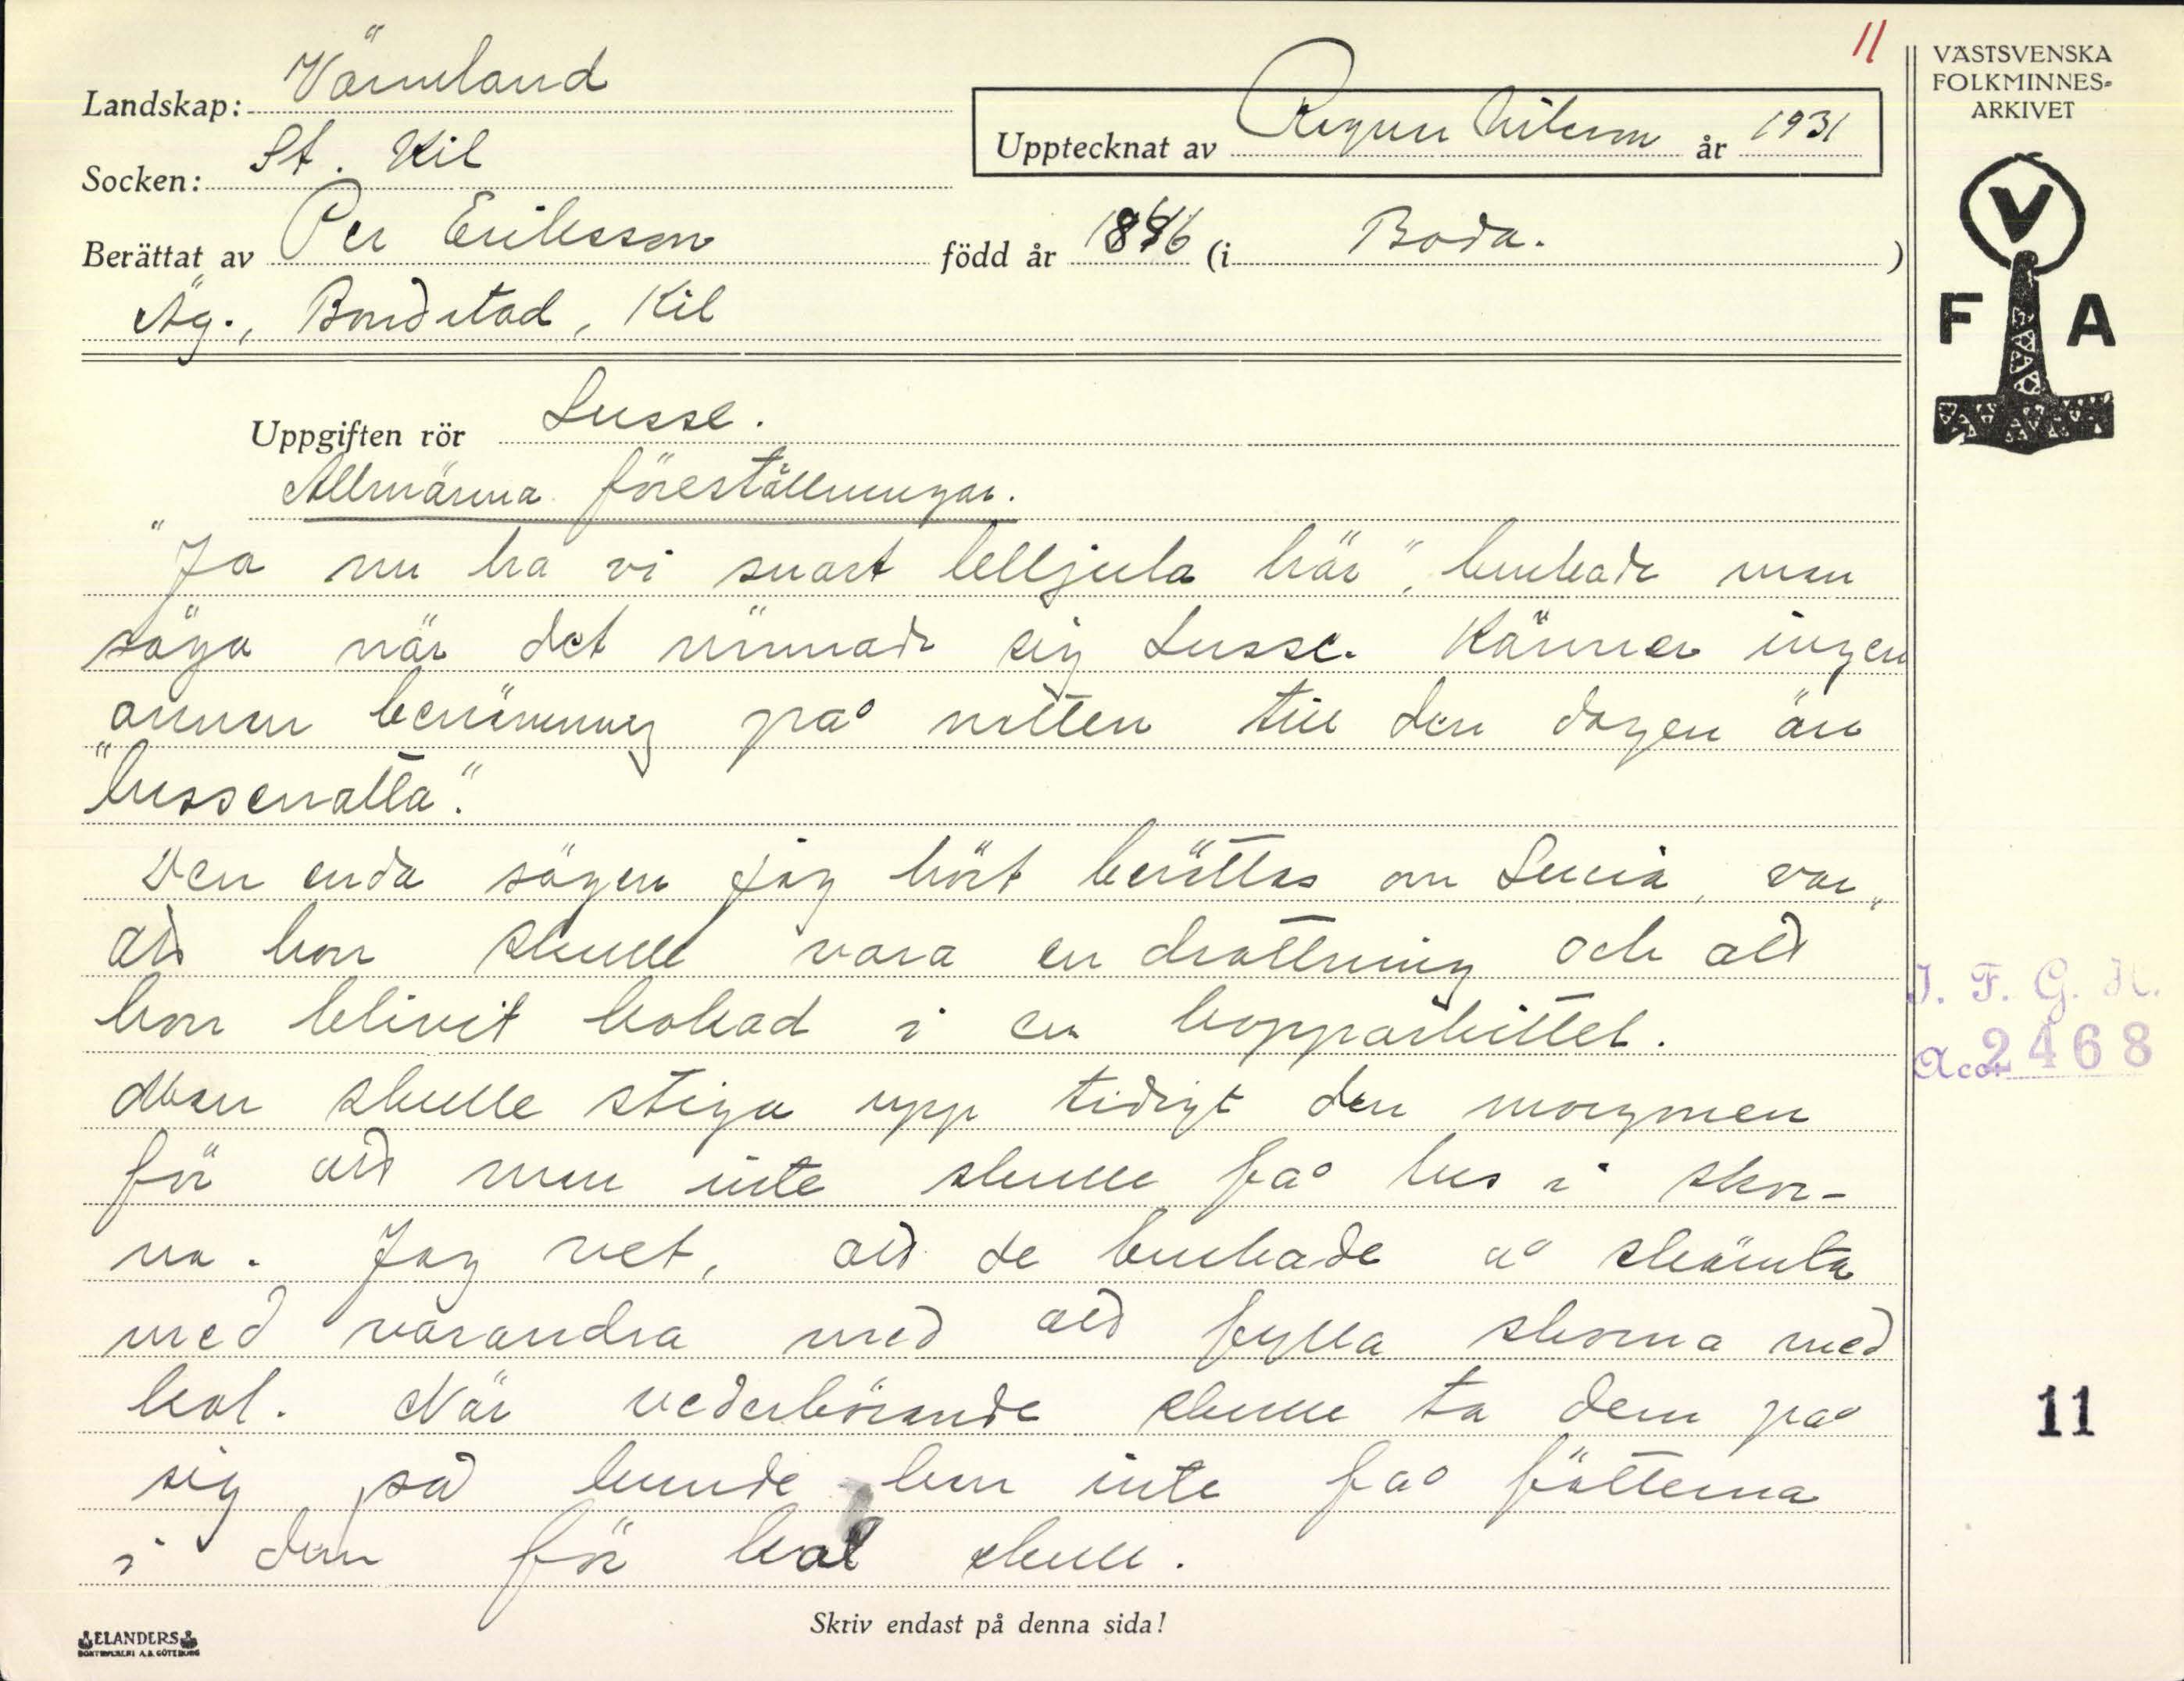 11
VÄSTSVENSKA
FOLKMINNES-
ARKIVET
Landskap: Värmland
Upptecknat av Ragnar Nilsson år 1931
Socken: St. Kil
Berättat av Per Eriksson född år 1846 (i Boda.)
Äg., Bondstad, Kil
V
F A
Uppgiften rör Lusse.
Allmänna föreställningar.
"Ja nu ha vi snart lelljula här", brukade man
säga när det närmade sig Lusse. Känner ingen
annan benämning på natten till den dagen än
"lussenatta".
Den enda sägen jag hört berättas om Lucia, var,
att hon skulle vara en drottning och att
hon blivit kokad i en kopparkittel.
Man skulle stiga upp tidigt den morgonen
för att man inte skulle få lus i skor-
na. Jag vet, att de brukade å skämta
med varandra med att fylla skorna med
kol. När vederbörande skulle ta dem på
sig så kunde han inte få fötterna
i dem för kol skull.
I. F. G. H.
Acc. 2468
11
Skriv endast på denna sida!
ELANDERS
BOKTRYCKERI A.B. GÖTEBORG